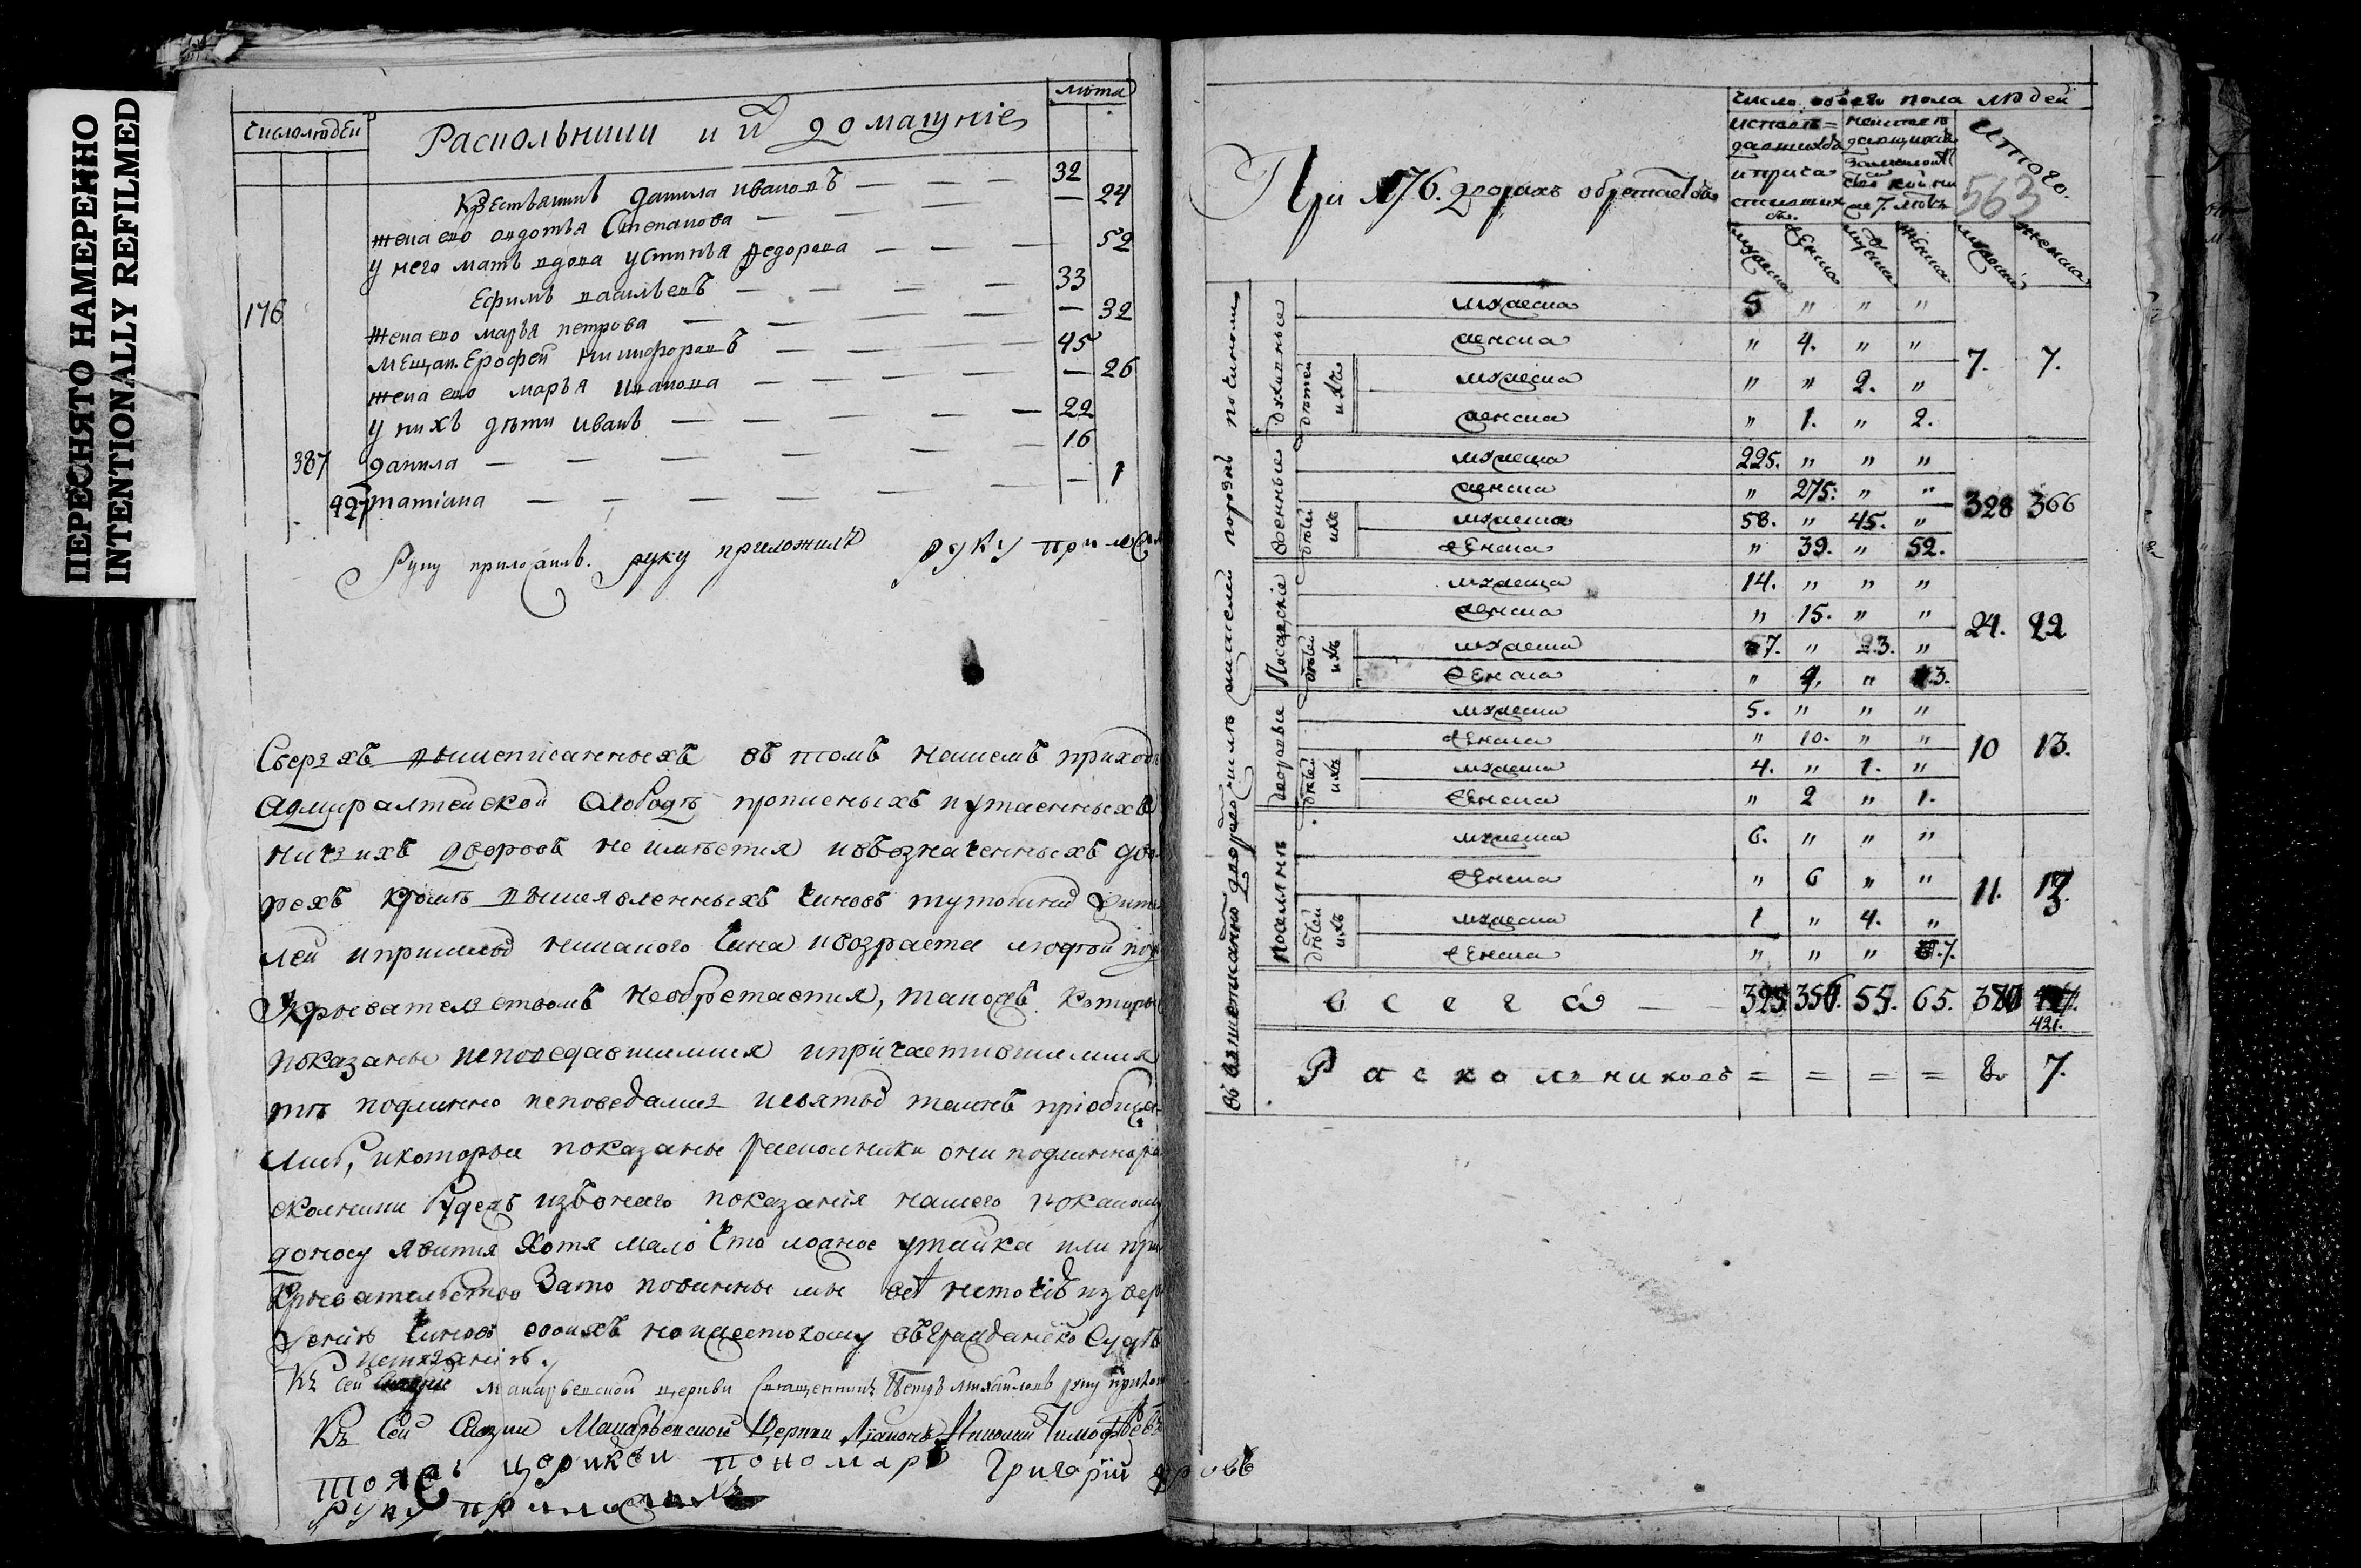 ПЕРЕСНЯТО НАМЕРЕННО
INTENTIONALLY REFILMED
число людей
Раскольники и их домашние
лета
крестьянинъ данила ивановъ — — — 32
жена ево авдотья Степанова — — — — 24
у него мать вдова устинья федорова — — — 52
176 Ефимъ васильевъ — — — — 33
жена ево марья петрова — — — — 32
мещан. Ерофей никифоровъ — — — 45
жена ево марья иванова — — — — 26
у нихъ дѣти иванъ — — — — — 22
387 данила — — — — — — 16
427 татiана — — — — — — 1
Руку приложилъ. руку приложилъ руку приложил
Сверхъ вышеписанныхъ въ томъ нашемъ приходе
адмиралтейской слободѣ прописныхъ и утаенныхъ
ничьихъ дворовъ не имѣется и въ означенныхъ дво
рехъ кромѣ вышеявленныхъ чиновъ тутошних жите
лей и пришлых никакого чина и возраста людей под
укрывательствомъ необретается, такожъ которые
показаны исповедавшимися и причастившимися
тѣ подлинно исповедались и святых таинъ прiобща
лись, и которые показаны раскольники они подлинно ра
скольники будежъ изъ онаго показанiя нашего по какому
доносу явится хотя мало что ложное утайка или при
крывательство за то повинны мы
чиновъ своихъ и жестокому въ гражданско суде
истязанiю.
Къ сей макарьевской церкви священникъ Петръ михайловъ руку прилож
Къ сей сказки Макарьевской Церкви дiаконъ Николай Тимофѣевъ
тояжъ церкви пономарь Григорiй
руку приложилъ
При 176. дворахъ обретается
число обоего пола людей
исповѣ=
давшихся
и прича
стивших
ся.
неиспове
давшихся
7. летъ
итого.
563
мужеска женска мужеска женска мужеска женска
въ вышеписанно дворо числѣ жителей порознь по чиномъ
духовные
мужеска 5 " " "
женска " 4. " "
детей ихъ
мужеска " " 2. "
женска " 1. " 2.
7. 7.
военные
мужеска 225. " " "
женска " 275. " "
детей ихъ
мужеска 58. " 45. "
женска " 39. " 52.
328 366
Посадскiе
мужеска 14. " " "
женска " 15. " "
детей ихъ
мужеска 7. " 3. "
женска " 4. " 3.
24. 22
дворовые
мужеска 5. " " "
женска " 10. " "
детей ихъ
мужеска 4. " 1. "
женска " 2 " 1.
10 13.
мужеска 6. " " "
женска " 6 " "
детей ихъ
мужеска 1 " 4. "
женска " " " 7.
11. 13.
всего — 325 356. 55. 65. 380 421.
Раскольниковъ = = = = 8. 7.